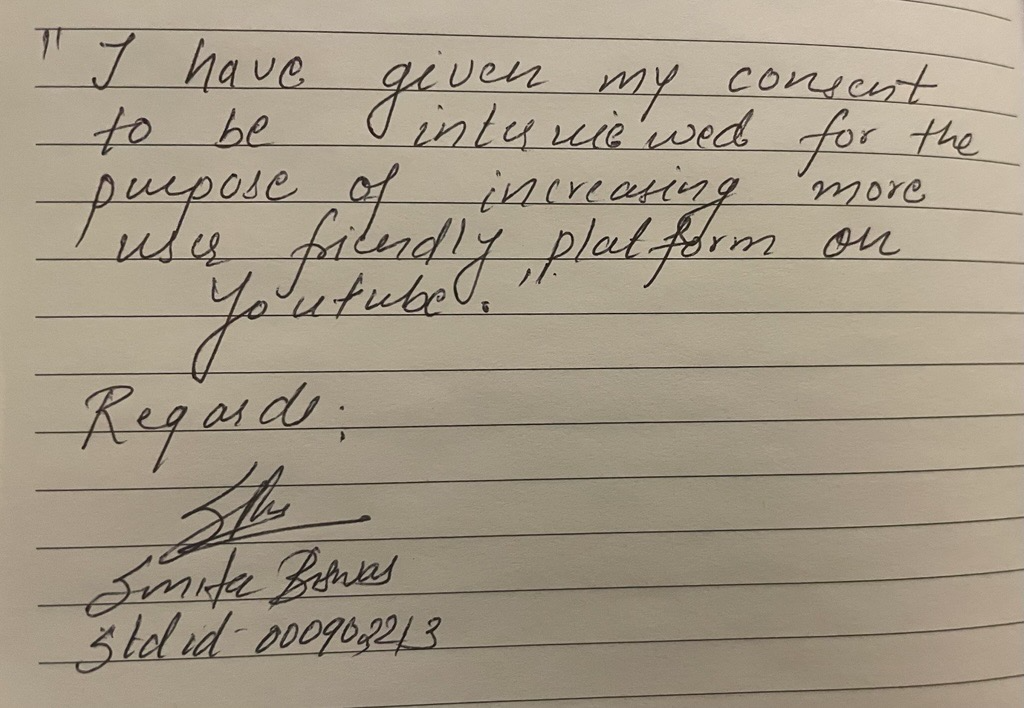 " I have given my consent
to be interviewed for the
purpose of increasing more
user friendly platform on
Youtube. "
Regards,
Smita Biswas
Std id - 000903213